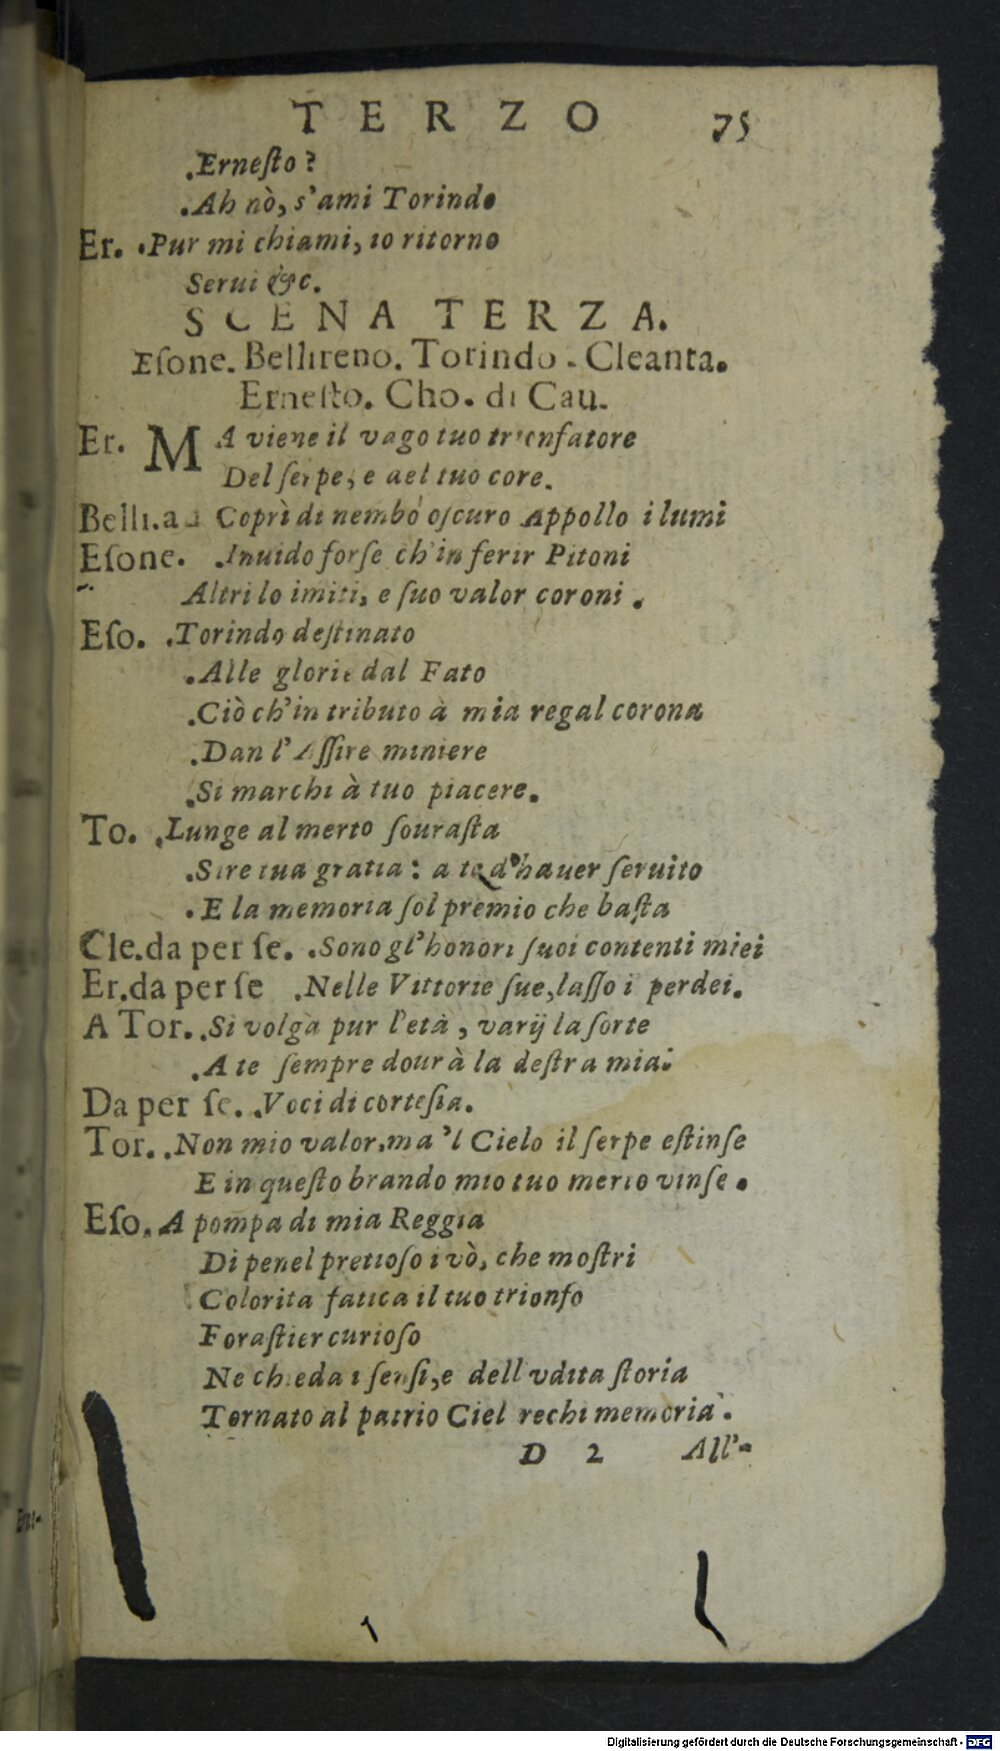 TERZO 75
.Erneſto?
.Ah nò, s'ami Torindo
Er. .Pur mi chiami, io ritorno
Serui &c.
SCENA TERZA.
Eſone. Bellireno. Torindo. Cleanta.
Erneſto. Cho. di Cau.
Er. MA viene il vago tuo trionfatore
Del ſerpe, e del tuo core.
Belli. Coprì di nembo oſcuro Appollo i lumi
Eſone. .Inuido forſe ch'in ferir Pitoni
Altri lo imiti, e ſuo valor coroni.
Eſo. .Torindo deſtinato
.Alle glorie dal Fato
.Ciò ch'in tributo à mia regal corona
.Dan l'Aſſire miniere
.Si marchi à tuo piacere.
To. .Lunge al merto ſouraſta
.Sire tua gratia: a te d'hauer ſeruito
.E la memoria ſol premio che baſta
Cle.da per ſe. .Sono gl'honori ſuoi contenti miei
Er.da per ſe .Nelle Vittorie ſue, laſſo i perdei.
A Tor. .Si volga pur l'età, varij la ſorte
.A te ſempre dourà la deſtra mia.
Da per ſe. .Voci di corteſia.
Tor. .Non mio valor, ma 'l Cielo il ſerpe eſtinſe
E in queſto brando mio tuo merto vinſe.
Eſo. A pompa di mia Reggia
Di penel pretioſo i vò, che moſtri
Colorita fatica il tuo trionfo
Foraſtier curioſo
Ne chieda i ſenſi, e dell vdita ſtoria
Tornato al patrio Ciel rechi memoria.
D 2 All'-
Digitalisierung gefördert durch die Deutsche Forschungsgemeinschaft - DFG